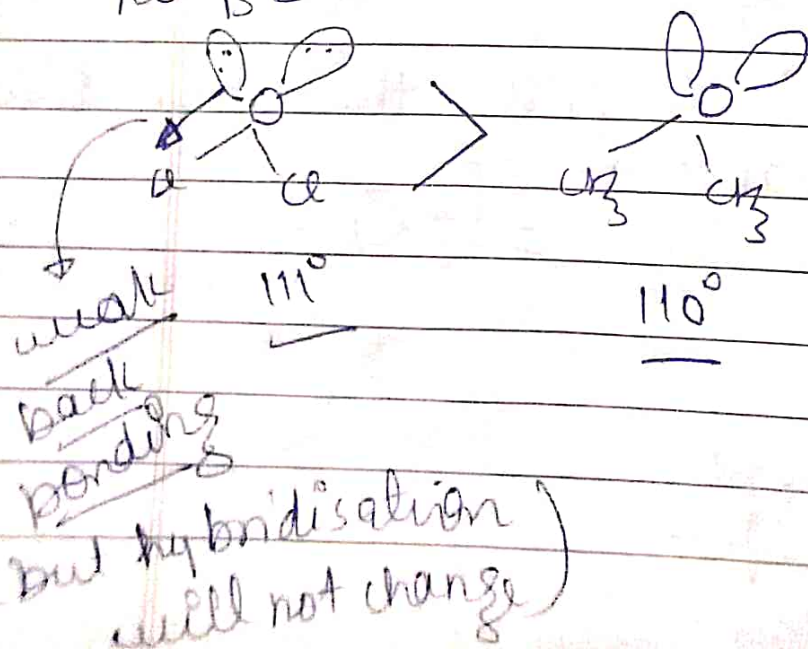 O
O
Cl
Cl
>
CH3
CH3
111°
110°
weak
back
bonding
but hybridisation
will not change)